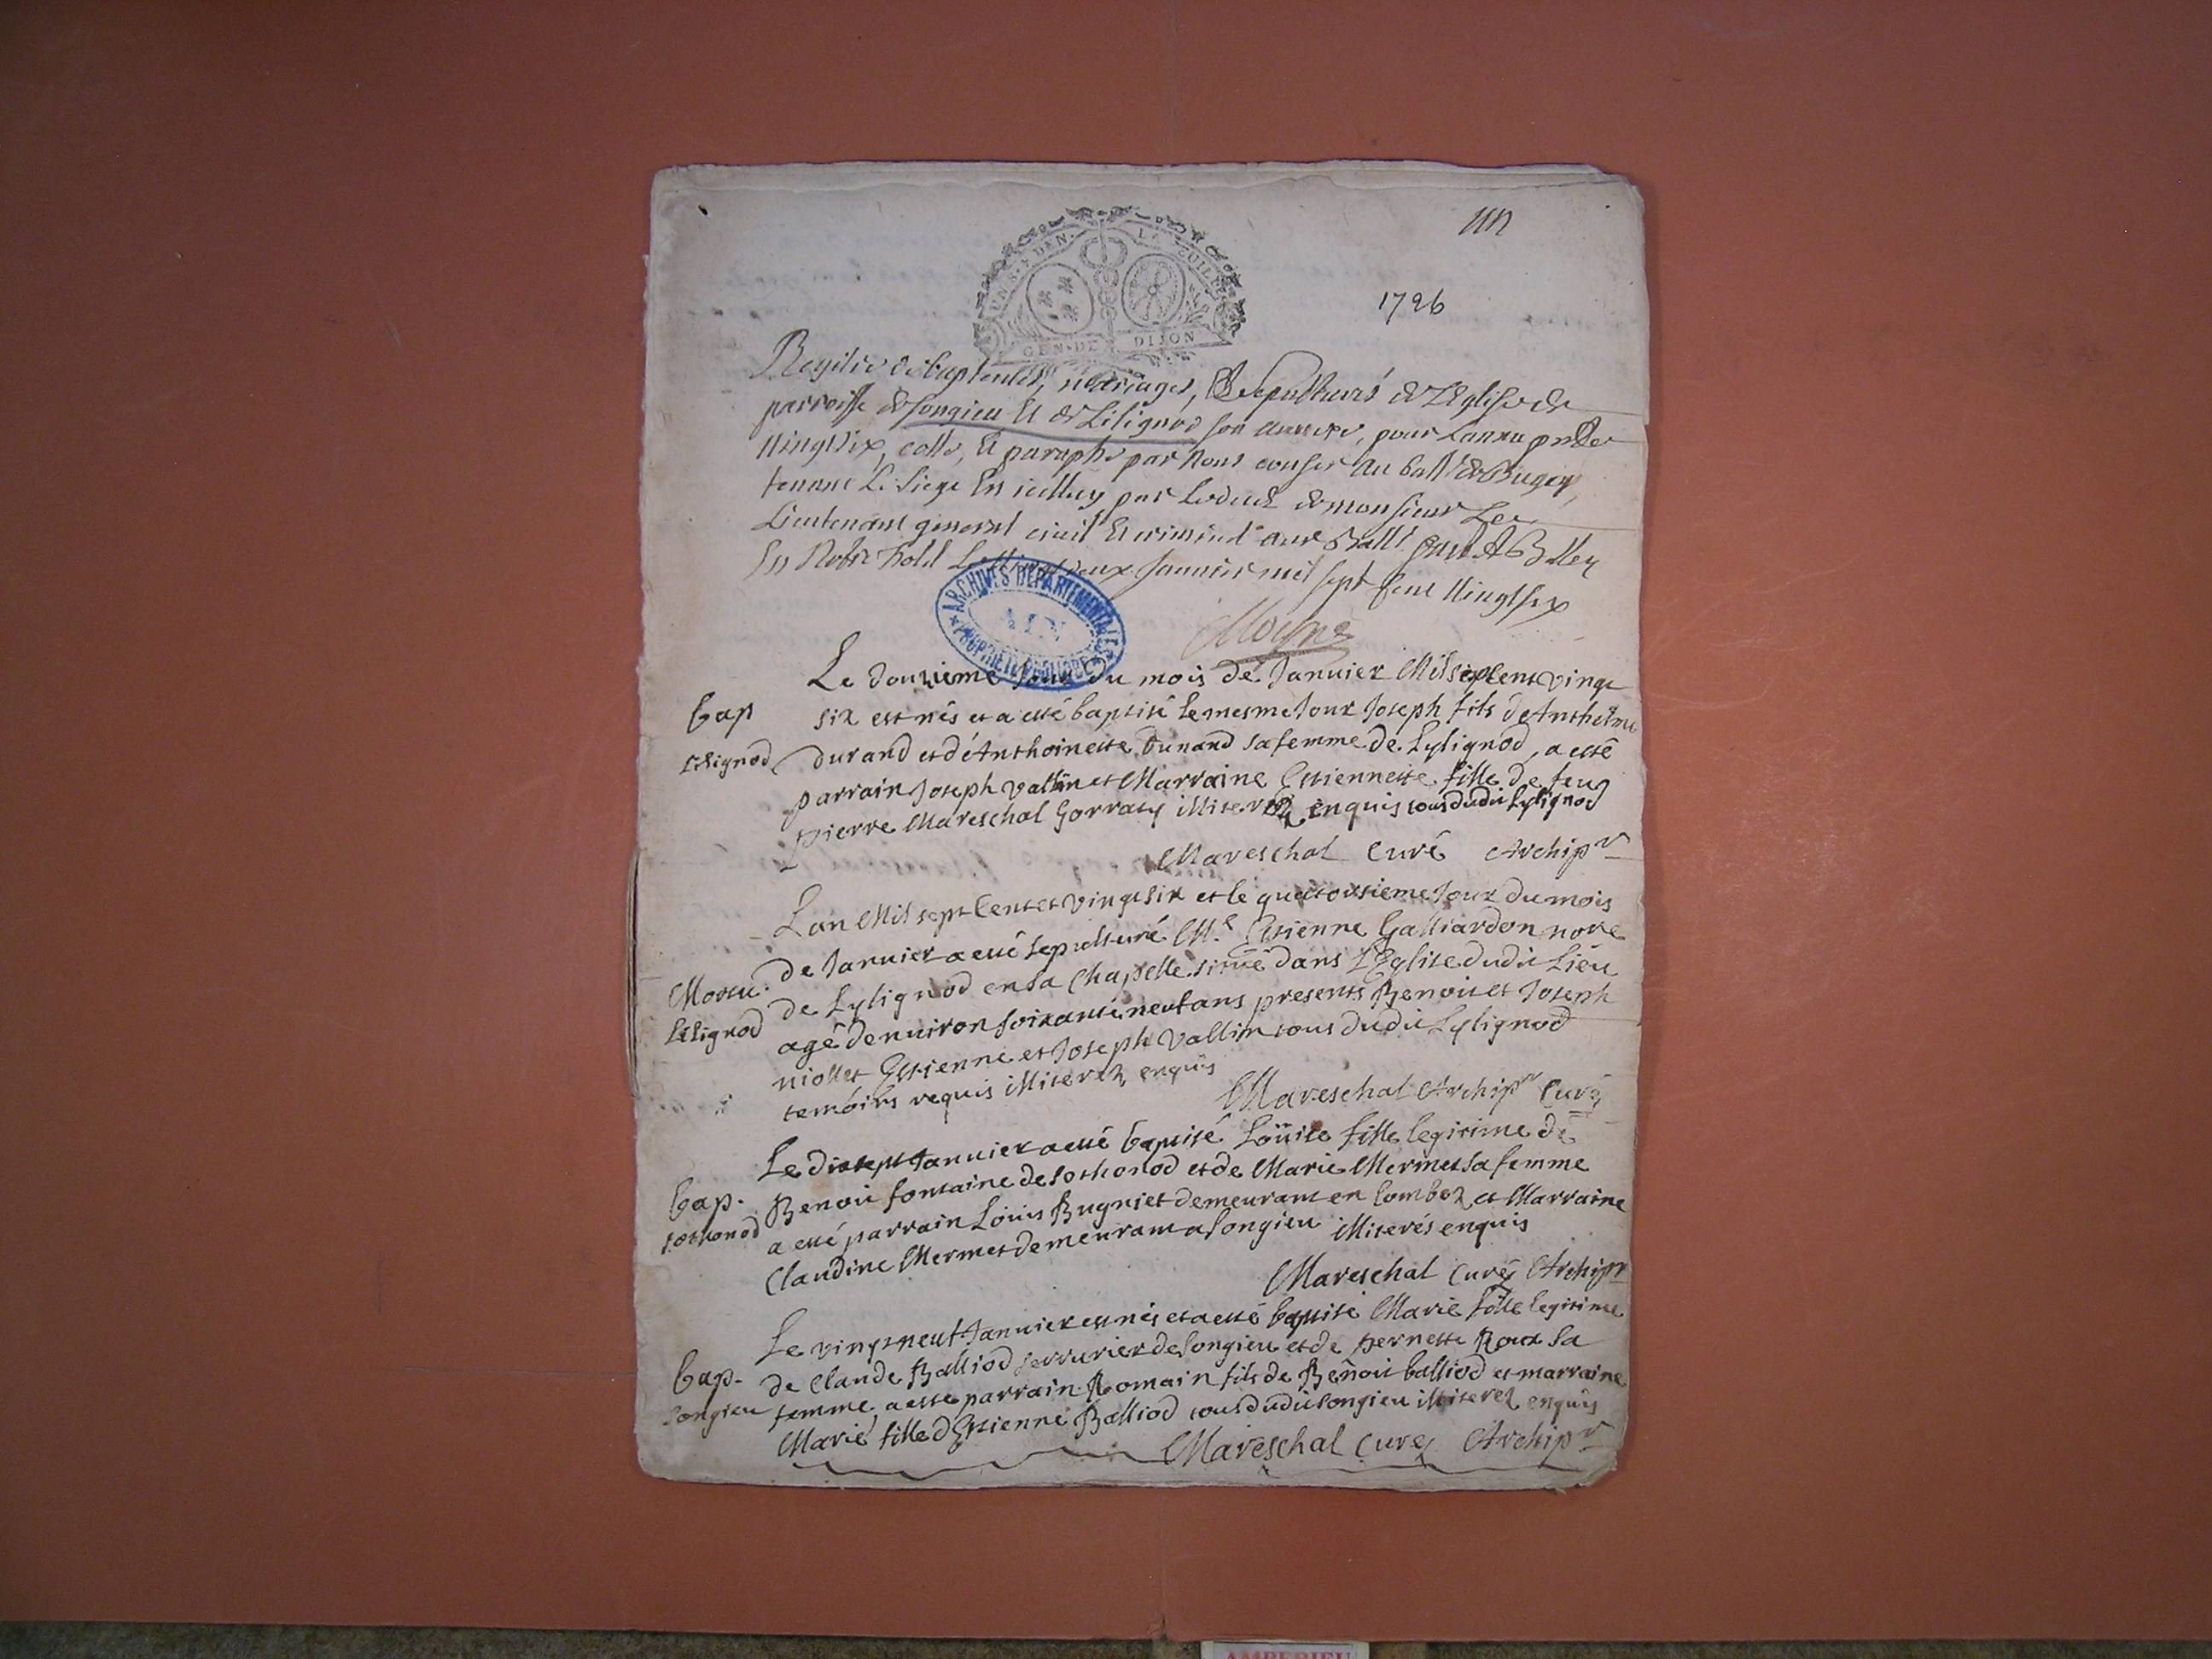 un
UN S. 4 DEN. LA FEUILLE
GEN. DE DIJON
1726
Registre de baptemes, mariages, Et sepultures de L'Eglise de
parroisse de songieu Et de Lilignod son annexe, pour Lannee
Vingt six, cotte, Et paraphe par Nous au de Bugey,
tenant Le siege En icelluy par de monsieur Le
Lieutenant general civil Et criminel A Belley
En Notre hotel Le Vingt deux Janvier mil sept Cent Vingt six
Moyne
ARCHIVES DEPARTEMENTALES
AIN
PROPRIETE PUBLIQUE
Le douzieme Jour du mois de Janvier Mil sept Cent vingt
Bap
six est nés et a esté baptisé le mesme Jour Joseph fils d'Anthelme
Lilignod
durand et d'Anthoinette Dunand sa femme de Lylignod, a esté
parrain Joseph vallin et Marraine Estiennette fille de feu
pierre Mareschal Gorraty illiterez enquis tous dudit Lylignod
Mareschal Curé Archipr
Lan Mil sept Cent et vingt six et le quatorsieme Jour du mois
de Janvier a esté sepulturé Mr Estienne Galliardon nore
Mortu.
de Lylignod en sa Chapelle situé dans L'Eglise dudit Lieu
Lilignod
agé denviron soixante neuf ans presents Benoit et Joseph
niollet Estienne et Joseph vallin tous dudit Lylignod
temoins requis illiterez enquis
Mareschal Archipr Curé
Le dixsept Janvier a esté baptisé Loüise fille legitime de
Benoit fontaine de sothonod et de Marie Mermet sa femme
Bap.
a esté parrain Loüis Bugniet demeurant en Combez et Marraine
sothonod
Claudine Mermet demeurant a songieu illiterés enquis
Mareschal Curé Archipr
Le vingt neuf Janvier est nés et a esté baptisé Marie fille legitime
de Claude Balliod serrurier de songieu et de pernette Roux sa
Bap.
femme, a esté parrain Romain fils de Benoit balliod et marraine
songieu
Marie fille d'Estienne Balliod tous dudit songieu illiterez enquis
Mareschal Curé Archipr